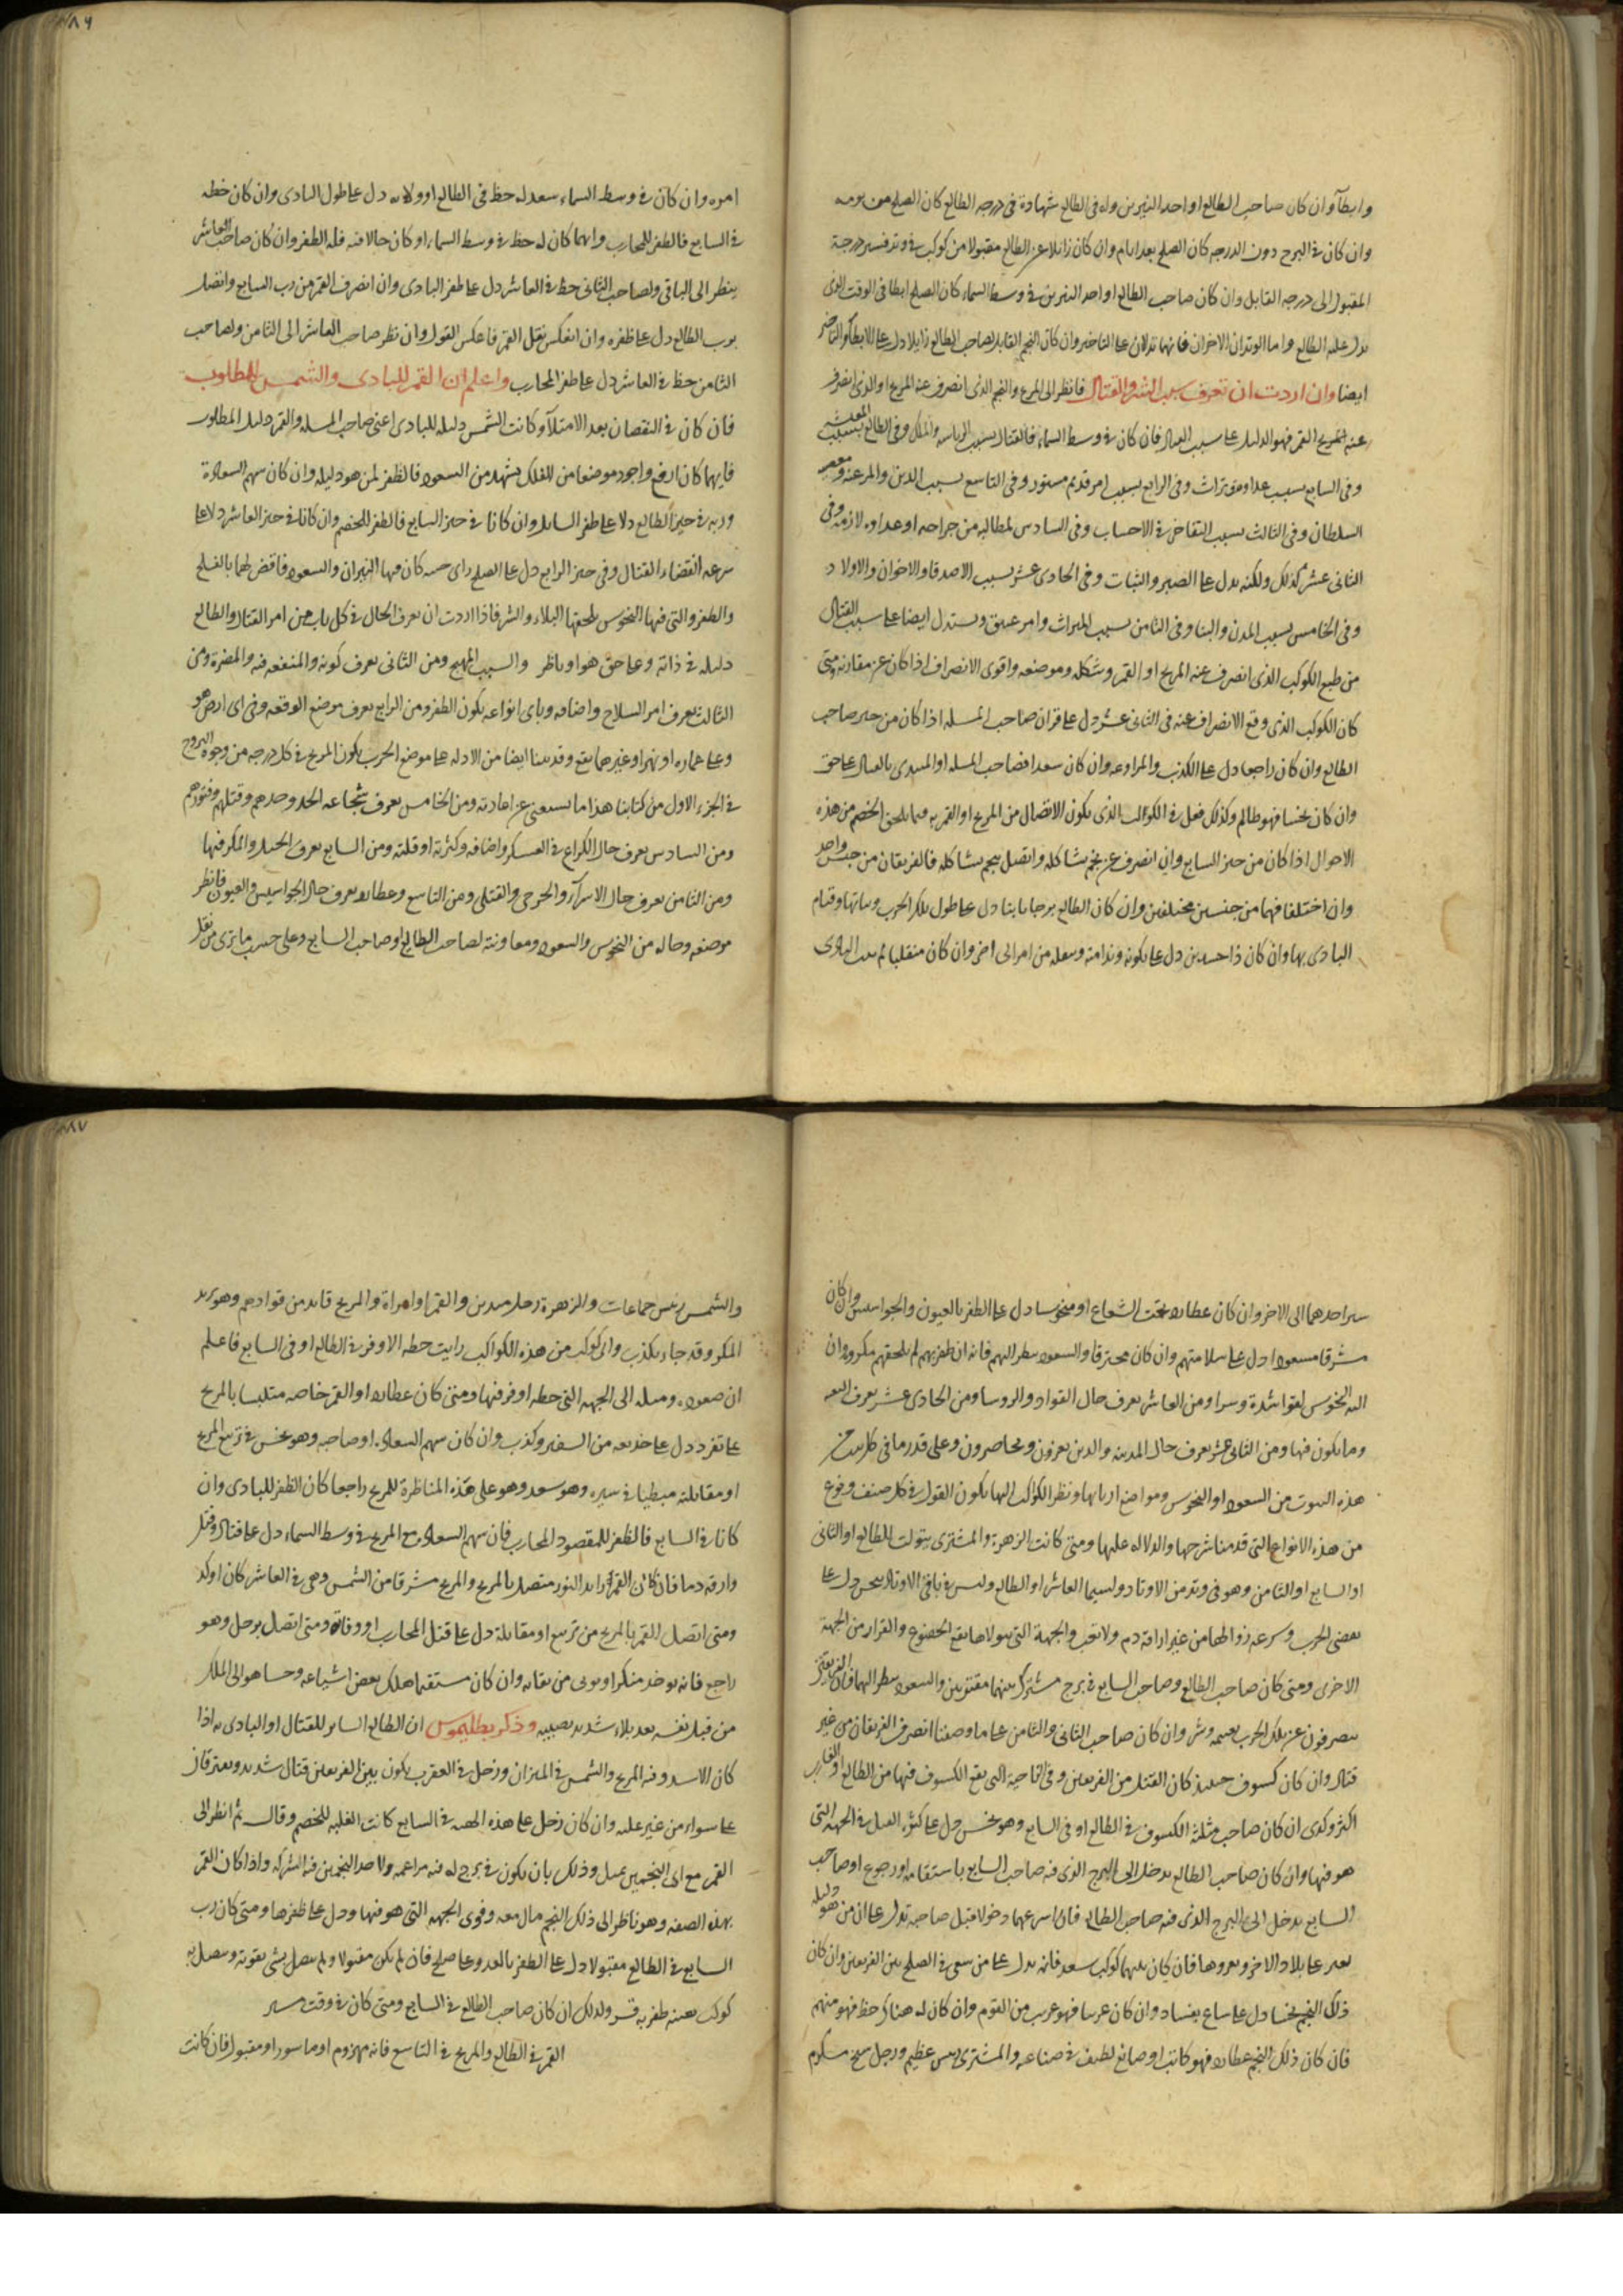 وابطآ وان كان صاحب الطالع او احد النيرين وله فى الطالع شهادة فى درجه الطالع كان الصلح من يومه
وان كان فى البرج دون الدرجه كان الصلح بعد ايام وان كان زائلا عن الطالع مقبولا من كوكب فى وتد فسير درجة
المقبول الى درجه القابل وان كان صاحب الطالع او احد النيرين فى وسط السماء كان الصلح ابطا فى الوقت الذى
يدل عليه الطالع واما الوتدان الاخران فانهما تدلان على التاخير وان كان النجم القابل لصاحب الطالع زايلا دل على الابطآ والتاخر
ايضا وان اردت ان تعرف سبب الشر والقتال فانظر الى المريخ والنجم الذى انصرف عنه المريخ او الذى انصرف
عنه القمر فهو الدليل على سبب القتال فان كان فى وسط السماء فالقتال بسبب الرياسه والملك وفى الطالع بسبب
وفى السابع بسبب عداوه وتراث وفى الرابع بسبب امر قديم مستور وفى التاسع بسبب الدين
السلطان وفى الثالث بسبب التفاخر فى الاحساب وفى السادس لمطالبه من جراحه او عداوه لازمه وفى
الثانى عشر كذلك ولكنه يدل على الصبر والثبات وفى الحادى عشر بسبب الاصدقا والاخوان والاولاد
وفى الخامس بسبب المدن والبنا وفى الثامن بسبب الميراث وامر عتيق ويستدل ايضا على سبب القتال
من طبع الكوكب الذى انصرف عنه المريخ او القمر وشكله وموضعه واقوى الانصراف اذا كان عن مقارنه ومتى
كان الكوكب الذى وقع الانصراف عنه فى الثانى عشر دل على قران صاحب المسله اذا كان من حيز صاحب
الطالع وان كان راجعا دل على الكذب والمراوغه وان كان سعدا فصاحب المسله او المبتدى بالقتال على حق
وان كان نحسا فهو ظالم وكذلك فعل فى الكواكب الذى يكون الاتصال من المريخ او القمر به فيما يلحق الخصم من هذه
الاحوال اذا كان من حيز السابع وان انصرف عن نجم يشاكله واتصل بنجم يشاكله فالفريقان من جنس واحد
وان اختلفا فهما من جنسين مختلفين وان كان الطالع برجا ثابتا دل على طول تلك الحرب وثباتها وقيام
البادى بها وان كان ذا جسدين دل على نكوثه وندامته ونقله من امر الى اخر وان كان منقلبا لم يثبت البادى
امره وان كان فى وسط السماء سعد له حظ فى الطالع او ولايه دل على طول البادى وان كان حظه
فى السابع فالظفر للمحارب وايهما كان له حظ فى وسط السماء او كان حالا فيه فله الظفر وان كان صاحب العاشر
ينظر الى الباقى ولصاحب الثانى حظ فى العاشر دل على ظفر البادى وان انصرف القمر من رب السابع واتصل
برب الطالع دل على ظفره وان انعكس نقل القمر فاعكس القول وان نظر صاحب العاشر الى الثامن ولصاحب
الثامن حظ فى العاشر دل على ظفر المحارب واعلم ان القمر للبادى والشمس للمطلوب
فان كان فى النقصان بعد الامتلآ وكانت الشمس دليله للبادى اعنى صاحب المسله والقمر دليل المطلوب
فايهما كان ارفع واجود موضعا من الفلك بشهد من السعود فالظفر لمن هو دليله وان كان سهم السعادة
وربه فى حيز الطالع دلا على ظفر السايل وان كانا فى حيز السابع فالظفر للخصم وان كانا فى حيز العاشر دلا على
سرعه انقضاء القتال وفى حيز الرابع دل على الصلح واى جهه كان فيها النيران والسعود فاقض لها بالفلج
والظفر والتى فيها النحوس يلحقها البلاء والشر فاذا اردت ان تعرف الحال فى كل باب من امر القتال والطالع
دليله فى ذاته وعلى حق هو او باطل والسبب المهيج ومن الثانى تعرف كونه والمنفعه فيه والمضرة ومن
الثالث تعرف امر السلاح واصنافه وباى انواعه يكون الظفر ومن الرابع تعرف موضع الوقعه وفى اى ارض هو
وعلى عماره او نهر او غيرهما يقع وقد بينا ايضا من الادله على موضع الحرب بكون المريخ فى كل درجه من وجوه البروج
فى الجزء الاول من كتابنا هذا ما نستغنى عن اعادته ومن الخامس تعرف شجاعه الجند وحدهم وقتلهم وفتورهم
ومن السادس تعرف حال الكراع فى العسكر واصنافه وكثرته او قلته ومن السابع تعرف الحيل والمكر فيها
ومن الثامن تعرف حال الاسرآ والجرحى والقتلى ومن التاسع وعطارد تعرف حال الجواسيس والعيون فانظر
موضعه وحاله من النحوس والسعود ومعاونته لصاحب الطالع او صاحب السابع وعلى حسب ما ترى من نقل
سر احدهما الى الاخر وان كان عطارد تحت الشعاع او منحوسا دل على الظفر بالعيون والجواسيس وان كان
مشرقا مسعودا دل على سلامتهم وان كان محترقا والسعود ينظر اليهم فانه ان ظفر بهم لم يلحقهم مكروه وان
اليه النحوس لقوا شدة وشرا ومن العاشر تعرف حال القواد والروسا ومن الحادى عشر تعرف التعبيه
وما يكون فيها ومن الثانى عشر تعرف حال المدينه والذين يغزون ويحاصرون وعلى قدر ما فى كل بيت من
هذه البيوت من السعود او النحوس ومواضع اربابها ونظر الكواكب اليها يكون القول فى كل صنف ونوع
من هذه الانواع التى قدمنا شرحها والدلاله عليها ومتى كانت الزهرة والمشترى يتولت الطالع او الثانى
او السابع او الثامن وهو فى وتد من الاوتاد ولسيما العاشر او الطالع وليس فى باقى الاوتاد نحس دل على
تقضى الحرب وسرعه زوالها من غير اراقة دم ولا تعب والجهة التى يتولاها يقع الخضوع والفرار من الجهة
الاخرى ومتى كان صاحب الطالع وصاحب السابع فى برج مشترك بينهما مقترنين والسعود ينظر اليهما فان الفريقين
ينصرفون عن تلك الحرب بغنيمه وشر وان كان صاحب الثانى والثامن على ما وصفنا انصرف الفريقان من غير
قتال وان كان كسوف حينئذ كان القتل من الفريقين وفى الناحية التى يقع الكسوف فيها من الطالع او الغارب
اكثر وكذى ان كان صاحب مثلثة الكسوف فى الطالع او فى السابع وهو نحس دل على كثرة القتل فى الجهه التى
هو فيها وان كان صاحب الطالع يدخل الى البرج الذى فيه صاحب السابع باستقامه او رجوع او صاحب
السابع يدخل الى البرج الذى فيه صاحب الطالع فان اسرعهما دخولا قبل صاحبه تدل على ان من هو دليله
يغير على بلاد الاخر ويغزوها فان كان بينهما كوكب سعد فانه يدل على من يسعى فى الصلح بين الفريقين وان كان
ذلك النجم نحسا دل على ساع بفساد وان كان غريبا فهو غريب من القوم وان كان له هناك حظ فهو منهم
فان كان ذلك النجم عطارد فهو كاتب او صانع لطيف فى صناعه والمشترى رييس عظيم وزحل شيخ
والشمس رئيس جماعات والزهرة رجل متدين والقمر او امراة والمريخ قايد من قوادهم وهو يريد
المكر وقد جاء بكذب واى كوكب من هذه الكواكب رايت حظه الاوفر فى الطالع او فى السابع فاعلم
ان صغوه وميله الى الجهه التى حظه اوفر فيها ومتى كان عطارد او القمر خاصه متلبسا بالمريخ
على تفرد دل على خديعه من السفير وكذب وان كان سهم السعادة او صاحبه وهو نحس فى تربيع المريخ
او مقابلته مبطيا فى سيره وهو سعد وهو على هذه المناظرة للمريخ راجعا كان الظفر للبادى وان
كانا فى السابع فالظفر للمقصود المحارب فان سهم السعادة مع المريخ فى وسط السماء دل على قتال وقتل
وارقه دما فان كان القمر زايد النور متصل بالمريخ والمريخ مشرقا من الشمس وهى فى العاشر كان اوكد
ومتى اتصل القمر بالمريخ من تربيع او مقابلة دل على قتل المحارب او وفاته ومتى اتصل بزحل وهو
راجع فانه يوخذ منكرا ويوبى من ثقاته وان كان مستقيما هلك بعض اشياعه وحسا هو الى الملك
من قبل نفسه بعد بلاء شديد يصيبه وذكر بطليموس ان الطالع الساير للقتال او البادى به اذا
كان الاسد وفيه المريخ والشمس فى الميزان وزحل فى العقرب يكون بين الفريقين قتال شديد ويفترقان
على سواء من غير غلبه وان كان زحل على هذه الجهه فى السابع كانت الغلبه للخصم وقال ثم انظر الى
القمر مع اى النجمين يميل وذلك بان يكون فى برج له فيه مزاعمه ولاحد النجمين فيه الشركه واذا كان القمر
بهذه الصفه وهو ناظر الى ذلك النجم مال معه وقوى الجهه التى هو فيها ودل على ظفرها ومتى كان رب
السابع فى الطالع مقبولا دل على الظفر بالعدو على صلح فان لم يكن مقبولا ولم يتصل بشى يقويه ويتصل به
كوكب يعينه ظفر به قسر ولذلك ان كان صاحب الطالع فى السابع ومتى كان فى وقت مسير
القمر فى الطالع والمريخ فى التاسع فانه مهزوم او ماسورا ومقبول فان كانت